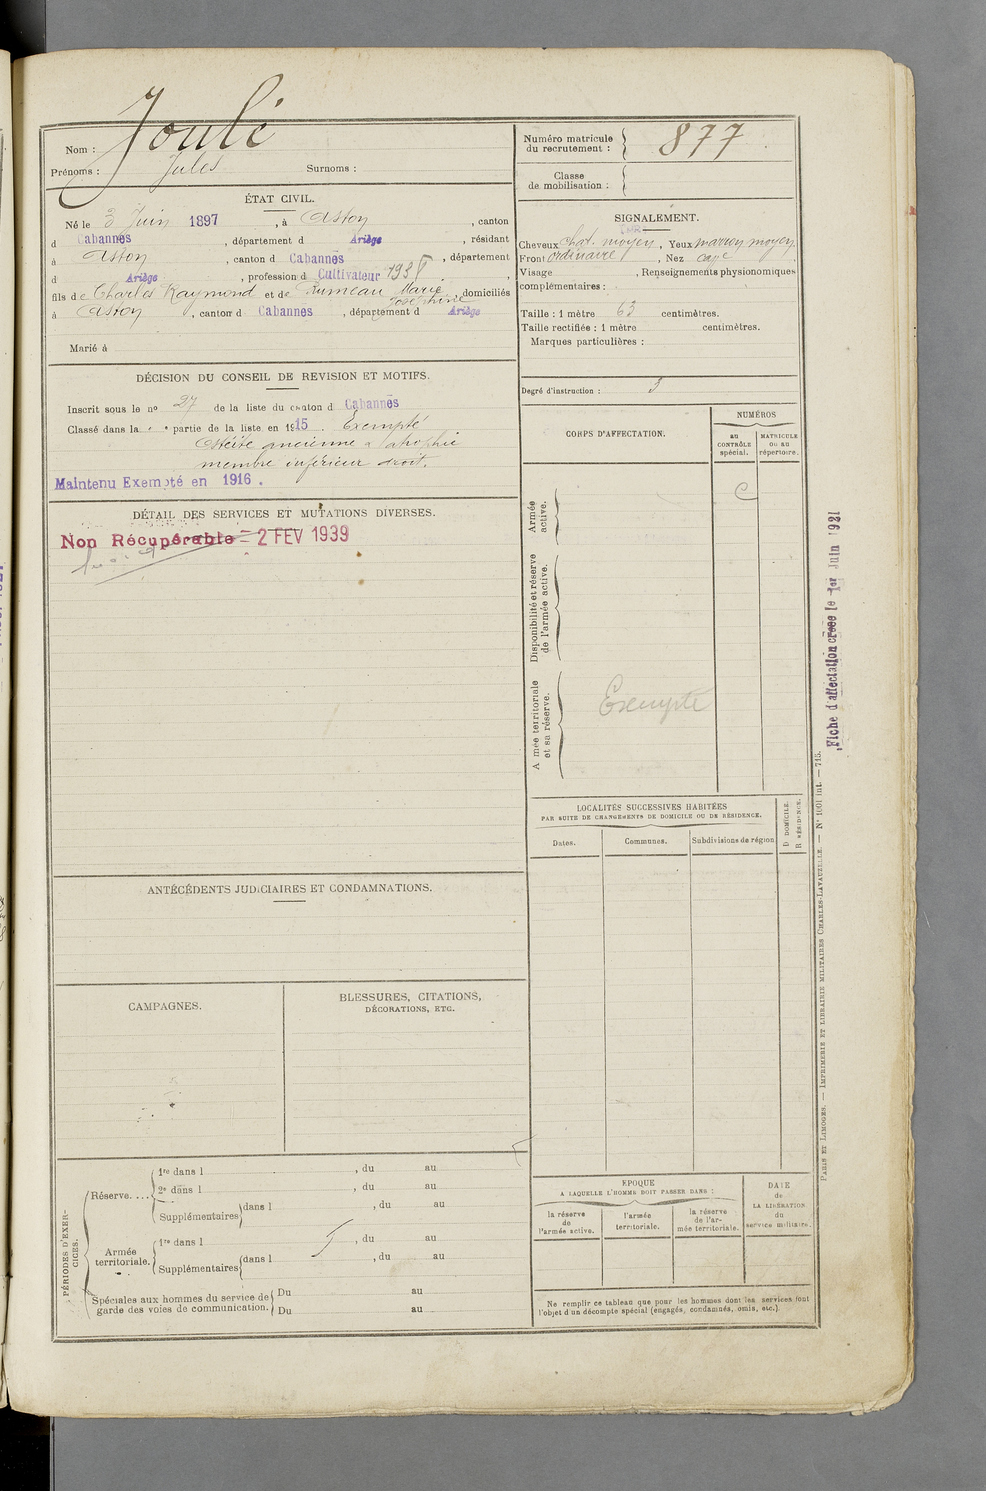 Nom : Joulé
Prénoms : Jules Surnoms :
ÉTAT CIVIL.
Né le 3 Juin 1897, à Aston, canton
d Cabannes, département d Ariège, résidant
à Aston, canton d Cabannes, département
d Ariège, profession d Cultivateur 1938,
fils de Charles Raymond et de Rumeau Marie Joséphine, domiciliés
à Aston, canton d Cabannes, département d Ariège
Marié à
DÉCISION DU CONSEIL DE REVISION ET MOTIFS.
Inscrit sous le no 27 de la liste du canton d Cabannes
Classé dans la partie de la liste en 1915. Exempté
Ostéite ancienne atrophie
membre inférieur droit.
Maintenu Exempté en 1916.
DÉTAIL DES SERVICES ET MUTATIONS DIVERSES.
Non Récupérable = 2 FEV 1939
ANTÉCÉDENTS JUDICIAIRES ET CONDAMNATIONS.
CAMPAGNES.
BLESSURES, CITATIONS,
DÉCORATIONS, ETC.
PÉRIODES D'EXERCICES.
Réserve. . . .
1re dans l , du au
2e dans l , du au
Supplémentaires dans l , du au
Armée
territoriale.
1re dans l , du au
Supplémentaires dans l , du au
Spéciales aux hommes du service de Du au
garde des voies de communication. Du au
Numéro matricule
du recrutement : 877
Classe
de mobilisation :
SIGNALEMENT.
Cheveux chat. moyen, Yeux marron moyen
Front ordinaire, Nez cave.
Visage , Renseignements physionomiques
complémentaires :
Taille : 1 mètre 63 centimètres.
Taille rectifiée : 1 mètre centimètres.
Marques particulières :
Degré d'instruction : 3
CORPS D'AFFECTATION.
NUMÉROS
au
CONTRÔLE
spécial.
MATRICULE
OU AU
répertoire.
C
Armée
active.
Disponibilité et réserve
de l'armée active.
A mée territoriale
et sa réserve.
Exempté
LOCALITÉS SUCCESSIVES HABITÉES
PAR SUITE DE CHANGEMENTS DE DOMICILE OU DE RÉSIDENCE.
Dates.
Communes.
Subdivisions de région
D DOMICILE.
R RÉSIDENCE.
ÉPOQUE
A LAQUELLE L'HOMME DOIT PASSER DANS :
la réserve
de
l'armée active.
l'armée
territoriale.
la réserve
de l'ar-
mée territoriale.
DATE
de
LA LIBÉRATION
du
service militaire.
Ne remplir ce tableau que pour les hommes dont les services font
l'objet d'un décompte spécial (engagés, condamnés, omis, etc.).
Fiche d'affectation créée le 1er Juin 1921
PARIS ET LIMOGES. — IMPRIMERIE ET LIBRAIRIE MILITAIRES CHARLES-LAVAUZELLE. — N° 1001 int. — 715.